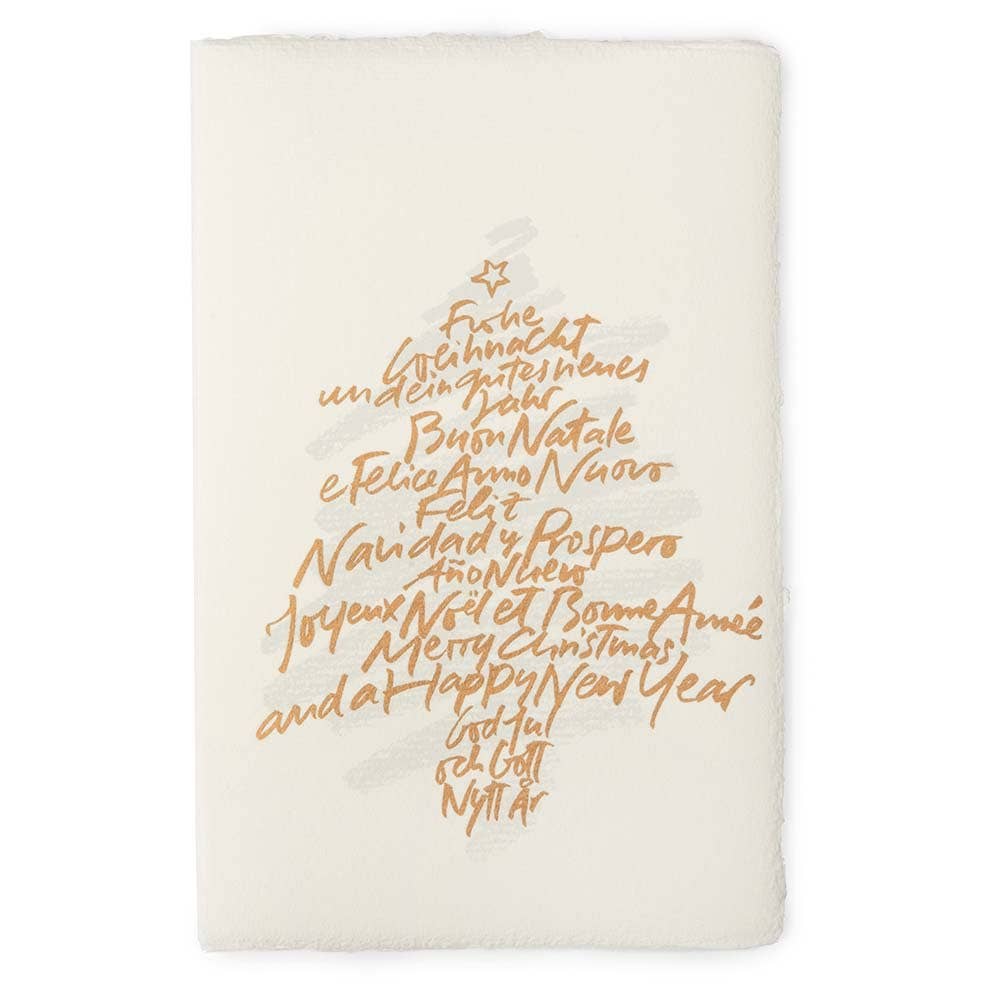 Frohe
Weihnacht
und ein gutes neues
Jahr
Buon Natale
e Felice Anno Nuovo
Feliz
Navidad y Prospero
Año Nuevo
Joyeux Noël et Bonne Année
Merry Christmas
and a Happy New Year
God Jul
och Gott
Nytt År